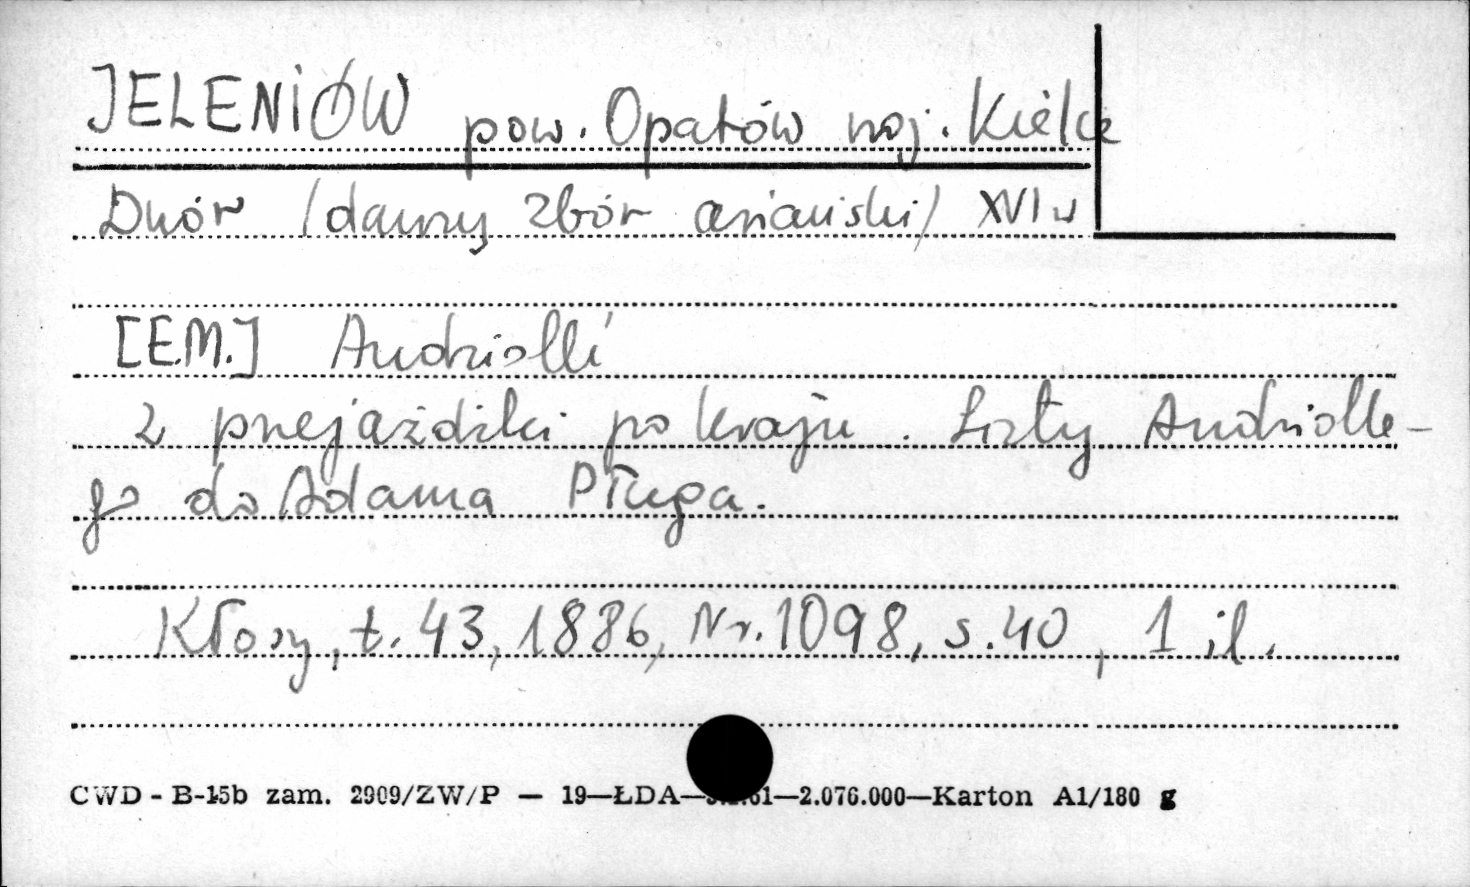 JELENIÓW pow. Opatów woj. Kielce
Dwór /dawny zbór ariański/ XVI w
[E.M.] Andriolli
Z przejażdżki po kraju. Listy Andrioлle-
go do Adama Pługa.
Kłosy, t. 43, 1886, Nr. 1098, s. 40, 1 il.
CWD - B-15b zam. 2909/ZW/P — 19—ŁDA— 61—2.076.000—Karton A1/180 g